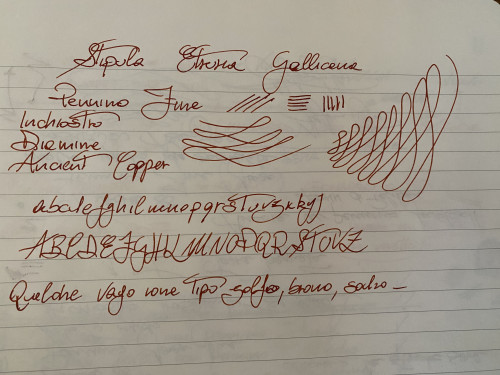 Stipula Etruria Gallicana
Pennino Fine
Inchiostro
Diamine
Ancient Copper
abcdefghilmnopqrstuvzxkyj
ABCDEFGHILMNOPQRSTUVZ
Qualche vago tipo golfo, bravo, salvo